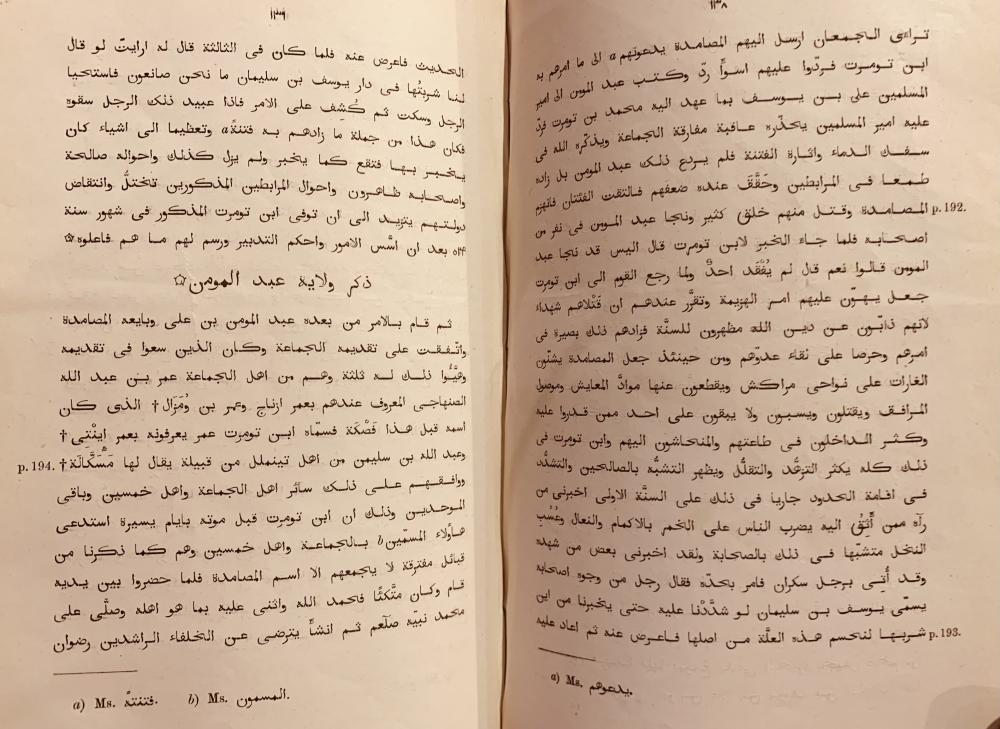 ١٣٨
تراءى الجمعان ارسل اليهم المصامدة يدعونهم a الى ما امرهم به
ابن تومرت فردّوا عليهم اسوأ ردّ وكتب عبد المومن الى امير
المسلمين على بن يوسف بما عهد اليه محمد بن تومرت فردّ
عليه امير المسلمين يحذّره عاقبة مفارقة الجماعة ويذكّره الله فى
سفك الدماء واثارة الفتنة فلم يردع ذلك عبد المومن بل زاده
طمعا فى المرابطين وحَقَّقَ عنده ضعفهم فالتقت الفئتان فانهزم
p.192. المصامدة وقتل منهم خلق كثير ونجا عبد المومن فى نفر من
اصحابه فلما جاء الخبر لابن تومرت قال اليس قد نجا عبد
المومن قالوا نعم قال لم يُفْقَد احدٌ ولما رجع القوم الى ابن تومرت
جعل يهوّن عليهم امر الهزيمة وتقرَّر عندهم ان قَتْلاهم شهداء
لانهم ذابّون عن دين الله مظهرون للسنَّة فزادهم ذلك بصيرة فى
امرهم وحرصا على نقاء عدوّهم ومن حينئذ جعل المصامدة يشنّون
الغارات على نواحى مراكش ويقطعون عنها موادّ المعايش وموصول
المرافق ويقتلون ويسبون ولا يبقون على احد ممن قدروا عليه
وكثر الداخلون فى طاعتهم والمنحاشون اليهم وابن تومرت فى
ذلك كله يكثر التزهُّد والتقلُّل ويظهر التشبُّه بالصالحين والتشدُّد
فى اقامة الحدود جاريا فى ذلك على السنَّة الاولى اخبرنى من
رآه ممن أَثِقُ اليه يضرب الناس على الخمر بالاكمام والنعال وعُسُب
النخل متشبّها فى ذلك بالصحابة ولقد اخبرنى بعض من شهده
وقد أُتِىَ برجل سكران فامر بحدّه فقال رجل من وجوه اصحابه
يسمّى يوسف بن سليمان لو شدَّدْنا عليه حتى يخبرنا من اين
p.193. شربها لنحسم هذه العلّة من اصلها فاعرض عنه ثم اعاد عليه
a) Ms. يدعوهم.
١٣٩
الحديث فاعرض عنه فلما كان فى الثالثة قال له ارايتَ لو قال
لنا شربتُها فى دار يوسف بن سليمان ما نحن صانعون فاستحيا
الرجل وسكت ثم كُشِف على الامر فاذا عبيد ذلك الرجل سقوه
فكان هذا من جملة ما زادهم به فتنةً a وتعظيما الى اشياء كان
يخبر بها فتقع كما يخبر ولم يزل كذلك واحواله صالحة
واصحابه ظاهرون واحوال المرابطين المذكورين تختلُّ وانتقاض
دولتهم يتزيد الى ان توفى ابن تومرت المذكور فى شهور سنة
٥٢۴ بعد ان اسَّس الامور واحكم التدبير ورسم لهم ما هم فاعلوه ☆
ذكر ولاية عبد المومن ☆
ثم قام بالامر من بعده عبد المومن بن على وبايعه المصامدة
واتّفقت على تقديمه الجماعة وكان الذين سعوا فى تقديمه
وهيَّوا ذلك له ثلثة وهم من اهل الجماعة عمر بن عبد الله
الصنهاجى المعروف عندهم بعمر ازناج وعمر بن وَمَزَال † الذى كان
اسمه قبل هذا فَصْكَة فسمّاه ابن تومرت عمر يعرفونه بعمر اينْتى †
p.194. وعبد الله بن سليمن من اهل تينملل من قبيلة يقال لها مَسَّكَّالَة †
ووافقهم على ذلك سائر اهل الجماعة واهل خمسين وباقى
الموحدين وذلك ان ابن تومرت قبل موته بايام يسيرة استدعى
هاؤلاء المسمّين b بالجماعة واهل خمسين وهم كما ذكرنا من
قبائل مفترقة لا يجمعهم الا اسم المصامدة فلما حضروا بين يديه
قام وكان متّكئًا فحمد الله واثنى عليه بما هو اهله وصلَّى على
محمد نبيّه صلّعم ثم انشأ يترضى عن الخلفاء الراشدين رضوان
a) Ms. فتنتةً. b) Ms. المسمون.